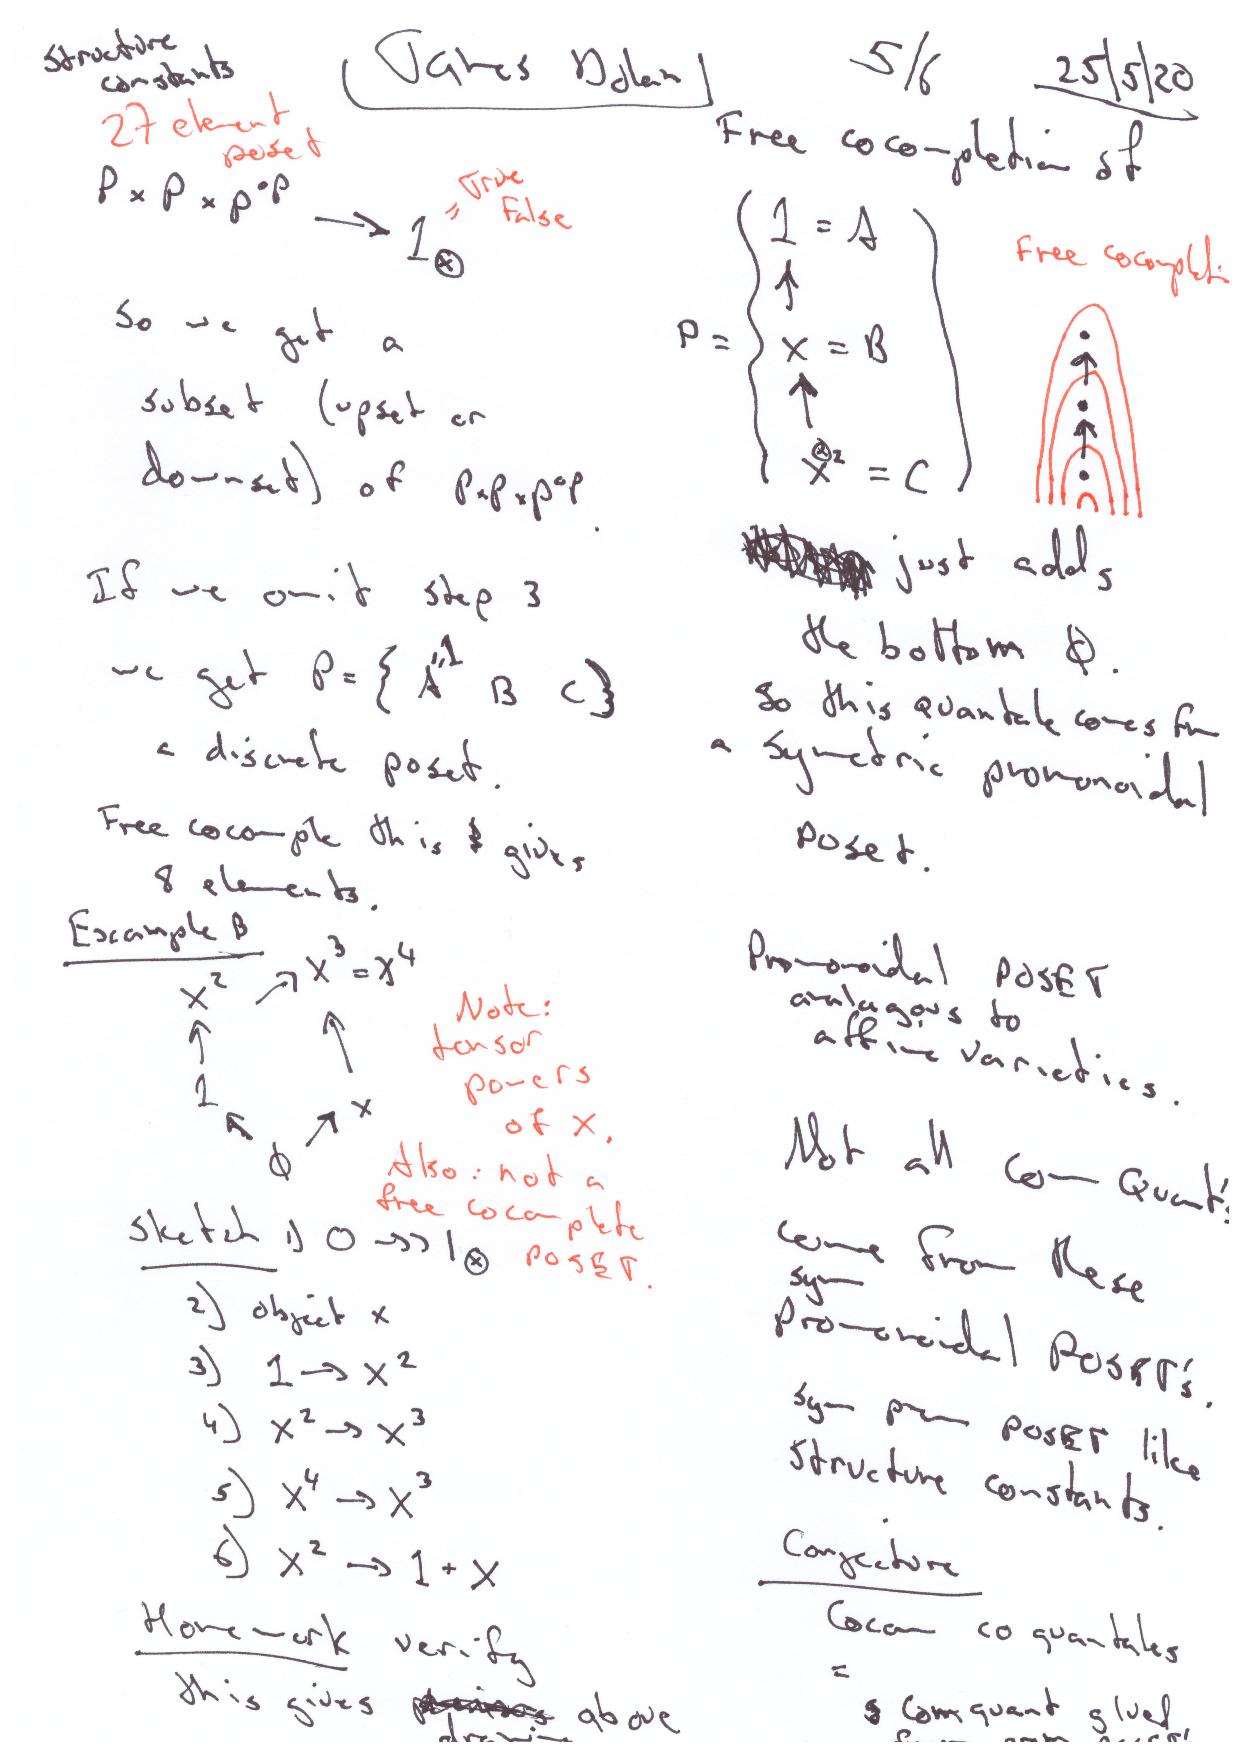 Structure
constants
James Dolan
5/6
25/5/20
27 element
poset
P × P × P^op → 1⊗
= True
False
So we get a
subset (upset or
downset) of P×P×P^op.
If we omit step 3
we get P = { A"1 B C }
a discrete poset.
Free cocomple this gives
8 elements.
Example B
x² → x³ = x⁴
↑ ↑
1 x
∅
Note:
tensor
powers
of x.
Also: not a
free cocomplete
POSET.
Sketch 1) 0 → 1⊗
2) object x
3) 1 → x²
4) x² → x³
5) x⁴ → x³
6) x² → 1 + x
Homework verify
this gives above
drawing
Free cocompletion of
1 = A
↑
P = x = B
↑
x^⊗2 = C
Free cocompleti
just adds
the bottom ∅.
So this quantale comes fm
a symetric promonoidal
poset.
Promonoidal POSET
analagous to
affine varieties.
Not all com Quant's
come from these
sym
Promonoidal POSET's.
sym prom POSET like
structure constants.
Conjecture
Cocom co quantales
=
s comquant glued